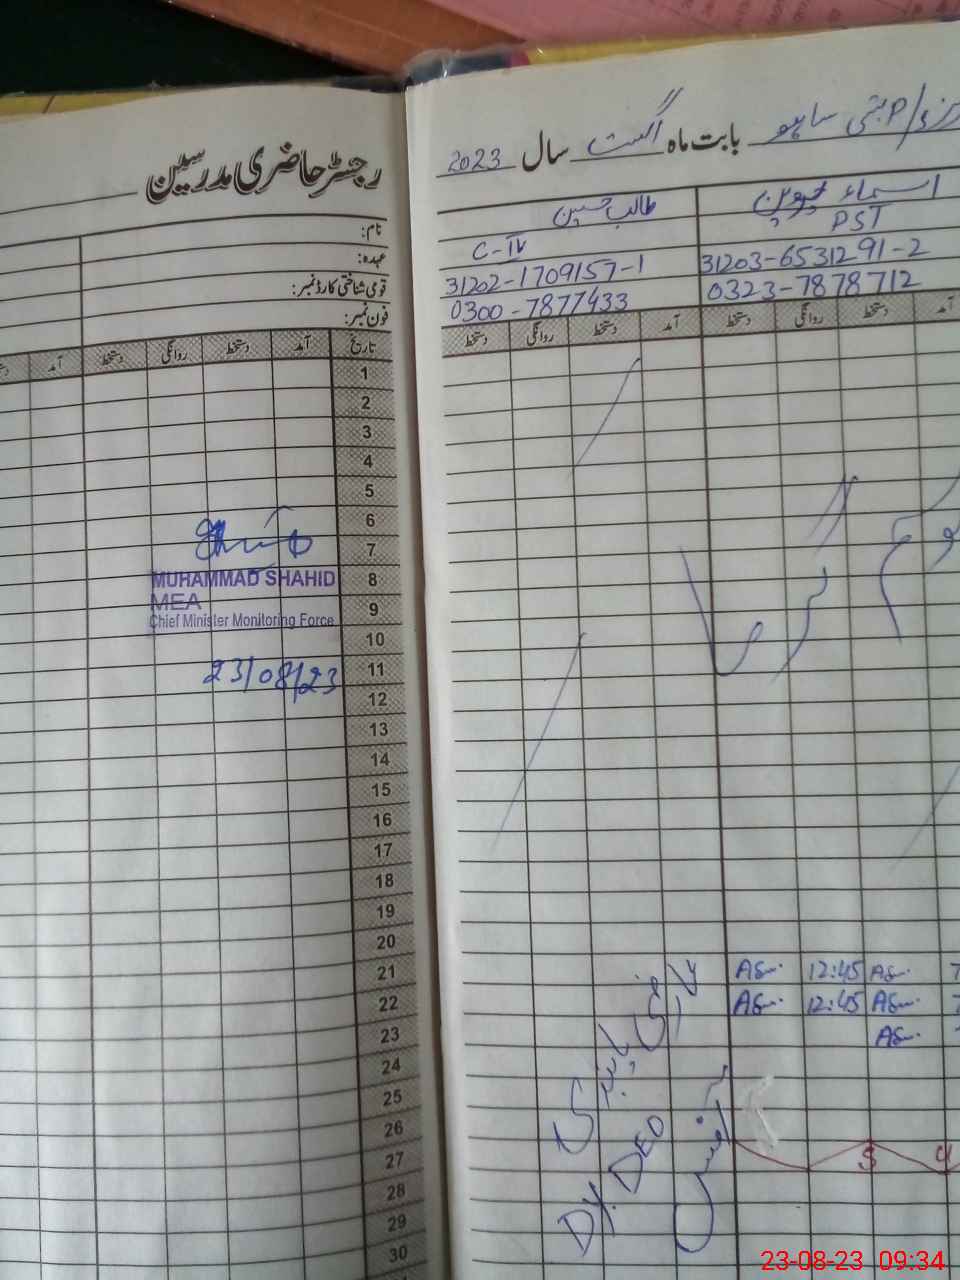 رجسٹر حاضری مدرسین
نام:
عہدہ:
قومی شناختی کارڈ نمبر:
فون نمبر:
تاریخ آمد دستخط روانگی دستخط آمد
1
2
3
4
5
6
7
8
9
10
11
12
13
14
15
16
17
18
19
20
21
22
23
24
25
26
27
28
29
30
MUHAMMAD SHAHID
MEA
Chief Minister Monitoring Force
23/08/23
بستی ساہو بابت ماہ اگست سال 2023
اسماء پروین طالب حسین
PST C-IV
31203-6531291-2 31202-1709157-1
0323-7878712 0300-7877433
آمد دستخط روانگی دستخط آمد دستخط روانگی دستخط
12:45
12:45
عارضی
آفس
Dy. DEO
S
23-08-23 09:34